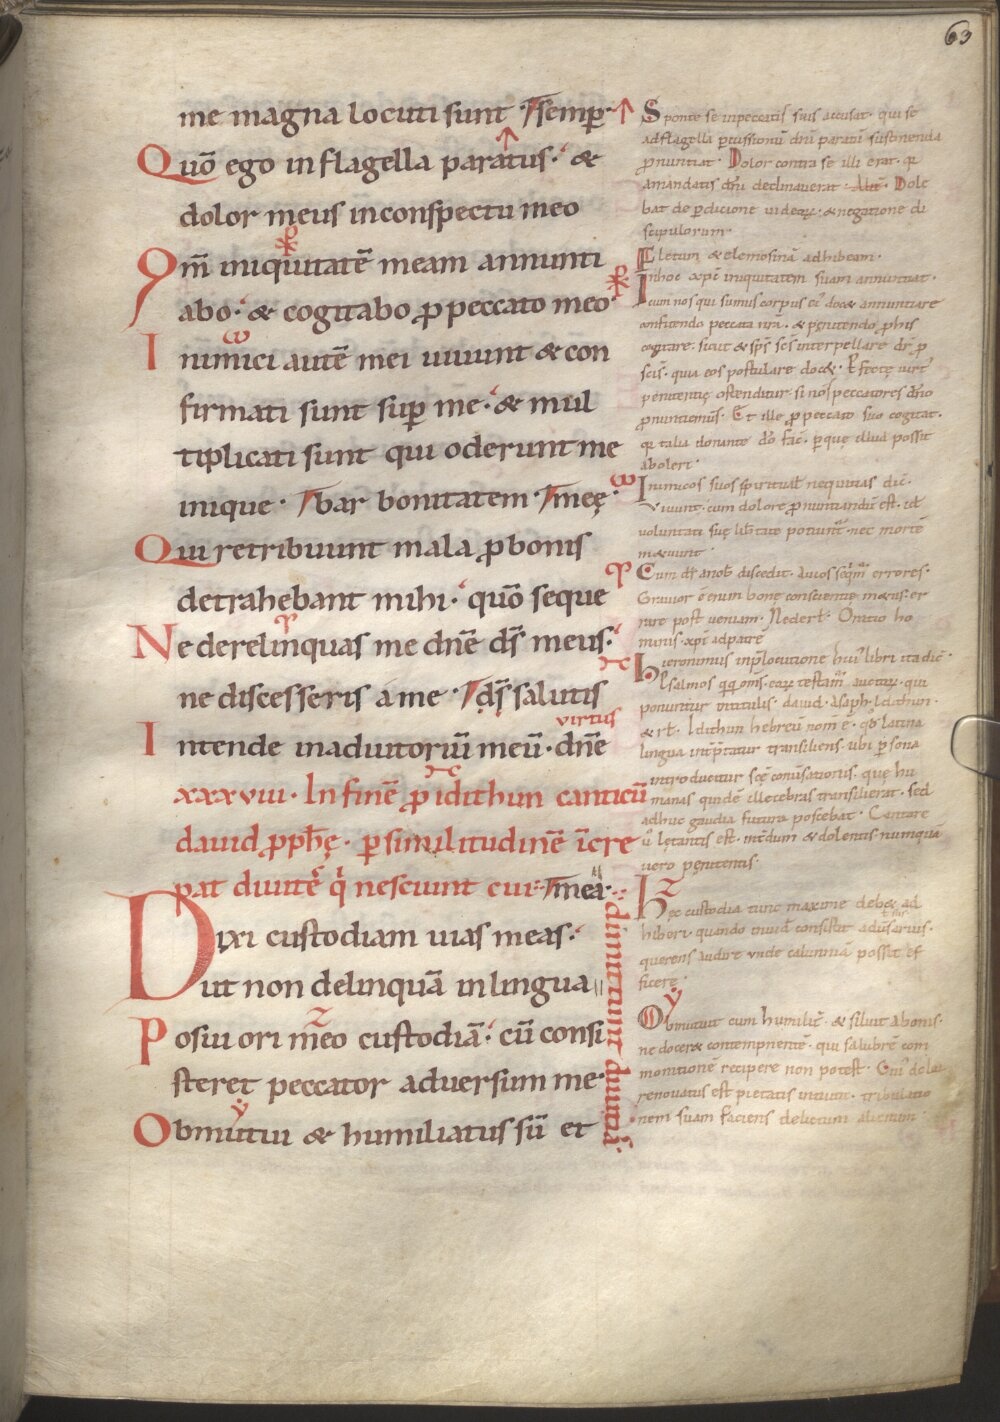 63
me magna locuti sunt · semꝑ·
Quō ego in flagella paratus·⸵ &
dolor meus inconspectu meo
Qm̄ iniquitatē meam annunti
abo·⸵ & cogitabo ꝓ peccato meo·
Inimici autē mei uiuunt & con
firmati sunt suꝑ me·⸵ & mul
tiplicati sunt qui oderunt me
inique · bar bonitatem · meę·
Qui retribuunt mala ꝓ bonis
detrahebant mihi·⸵ quō seque
Ne derelinquas me dnē ds̄ meus·
ne discesseris a me · ds̄ salutis
virtus
Intende inadiutoriū meū · dnē
xxxviii · In finē ꝓ idithun canticū
dauid ꝓph̄ę · ꝑ similitudinē īcre
pat diuitē q̇ nesciunt cui · mea·
dimittunt diuitias·
Dixi custodiam uias meas·
ut non delinquā in lingua
Posui ori meo custodiā·⸵ cū consi
steret peccator aduersum me·
Obmutui & humiliatus sū et
Sponte se inpeccatis suis accusat · qui se
adflagella ꝑcussionū dn̄i paratū sustinenda
ꝓnuntiat · Dolor contra se illi erat · qa
amandatis dn̄i declinauerat · Dole
bat de ꝑdicione iudeoꝝ · & negatione di
scipulorum
Fletum & elemosinā adhibeam ·
In hoc xp̄i iniquitatem suam annuntiat ·
cum nos qui sumus corpus ei' docet annuntiare
confitendo peccata nr̄a · & pęnitendo ꝓ his
cogitare · sicut & sp̄s sc̄s interpellare dr̄ ꝓ
scīs · quia eos postulare docet · Perfectę uirt'
penitentię ostenditur si nos peccatores dn̄o
ꝓnuntiemus · Et ille ꝓ peccato suo cogitat ·
qi talia donante dō fac̄ · ꝑ que illud possit
aboleri ·
Inimicos suos spiritual' nequitias dic̄ ·
Viuunt · cum dolore ꝓnuntiandū est · id
uoluntati suę libertate potiunt' · nec mortē
metuunt ·
Cum ds̄ a nob' discedit · a uios seq̄m̄ errores ·
Grauior ē enim bonę conscientię metus er
rare post ueniam · Ne derel' · Oratio ho
minis xp̄i ad patrē
Hieronimus in p̄locutione hui' libri ita dic̄ ·
Psalmos qqi oms̄ · eoꝝ testam̄ auctoꝝ · qui
ponuntur in titulis · dauid · asaph · Idithun ·
& rł · Idithun hebreū nom̄ ē · qd' latina
lingua intꝑtatur transiliens · ubi ꝑsona
introducitur scę conuersationis · quę hu
manas quidē illecebras transilierat · sed
adhuc gaudia futura poscebat · Cantare
ū lętantis est · int̄dum & dolentis numquā
uero pęnitentis ·
Hęc custodia tunc maxime debet ad
hiberi quando inuid' consistit aduersarius ·
querens audire unde caluniā possit ef
ficere ·
Obmutuit cum humilit' · & siluit a bonis ·
ne doceret contempnentē · qui salubrē com
monitionē recipere non potest · Cui' dolor
renouatus est pietatis intuitu · tribulatio
nem suam faciens delictum alienum ·